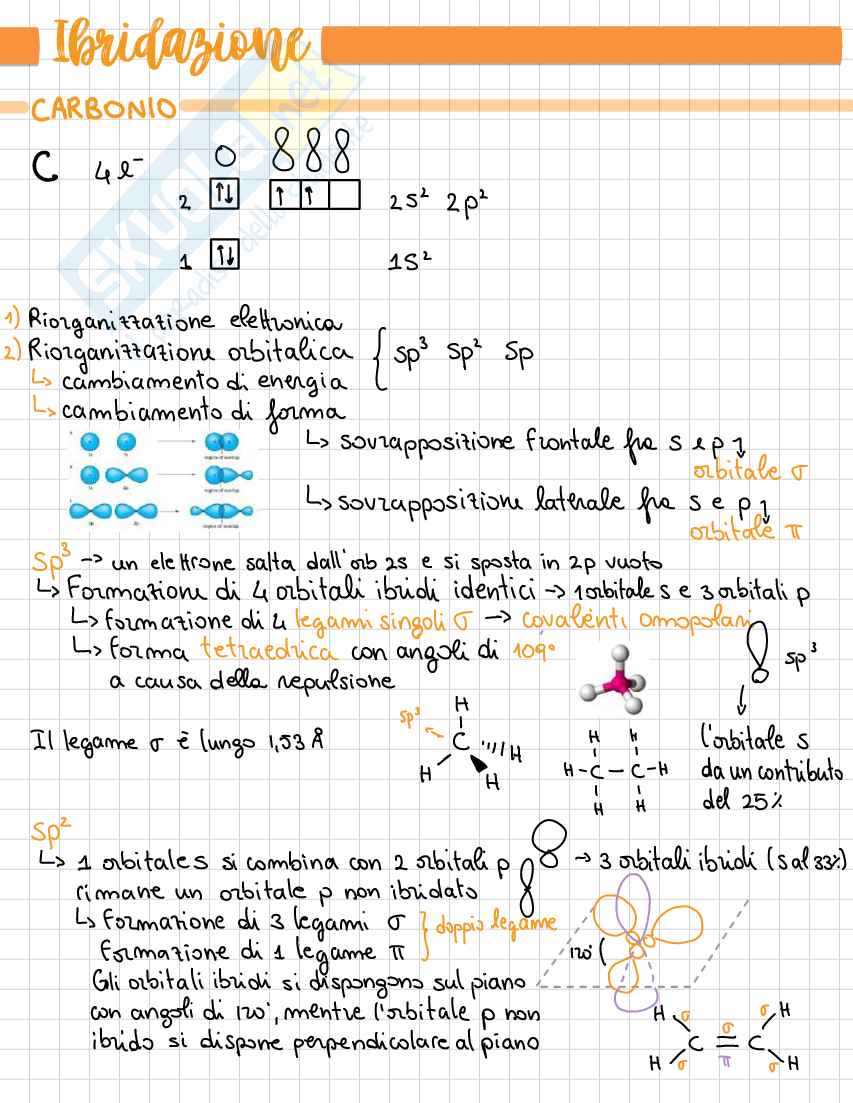 Ibridazione
CARBONIO
C 4e⁻
2 ↑↓ ↑ ↑ 2s² 2p²
1 ↑↓ 1s²
1) Riorganizzazione elettronica
2) Riorganizzazione orbitalica { sp³ sp² sp
↳ cambiamento di energia
↳ cambiamento di forma
↳ sovrapposizione frontale fra s e p
orbitale σ
↳ sovrapposizione laterale fra s e p
orbitale π
sp³ → un elettrone salta dall'orb 2s e si sposta in 2p vuoto
↳ Formazione di 4 orbitali ibridi identici → 1 orbitale s e 3 orbitali p
↳ formazione di 4 legami singoli σ → covalenti omopolari
↳ forma tetraedrica con angoli di 109°
a causa della repulsione
sp³
Il legame σ è lungo 1,53 Å
sp³
H
C
H
H
H
H H
H-C-C-H
H H
l'orbitale s
da un contributo
del 25%
sp²
↳ 1 orbitale s si combina con 2 orbitali p → 3 orbitali ibridi (s al 33%)
rimane un orbitale p non ibridato
↳ Formazione di 3 legami σ } doppio legame
Formazione di 1 legame π
120°
Gli orbitali ibridi si dispongono sul piano
con angoli di 120°, mentre l'orbitale p non
ibrido si dispone perpendicolare al piano
H σ σ H
C σ C
π
H σ σ H
SKUOLA.net